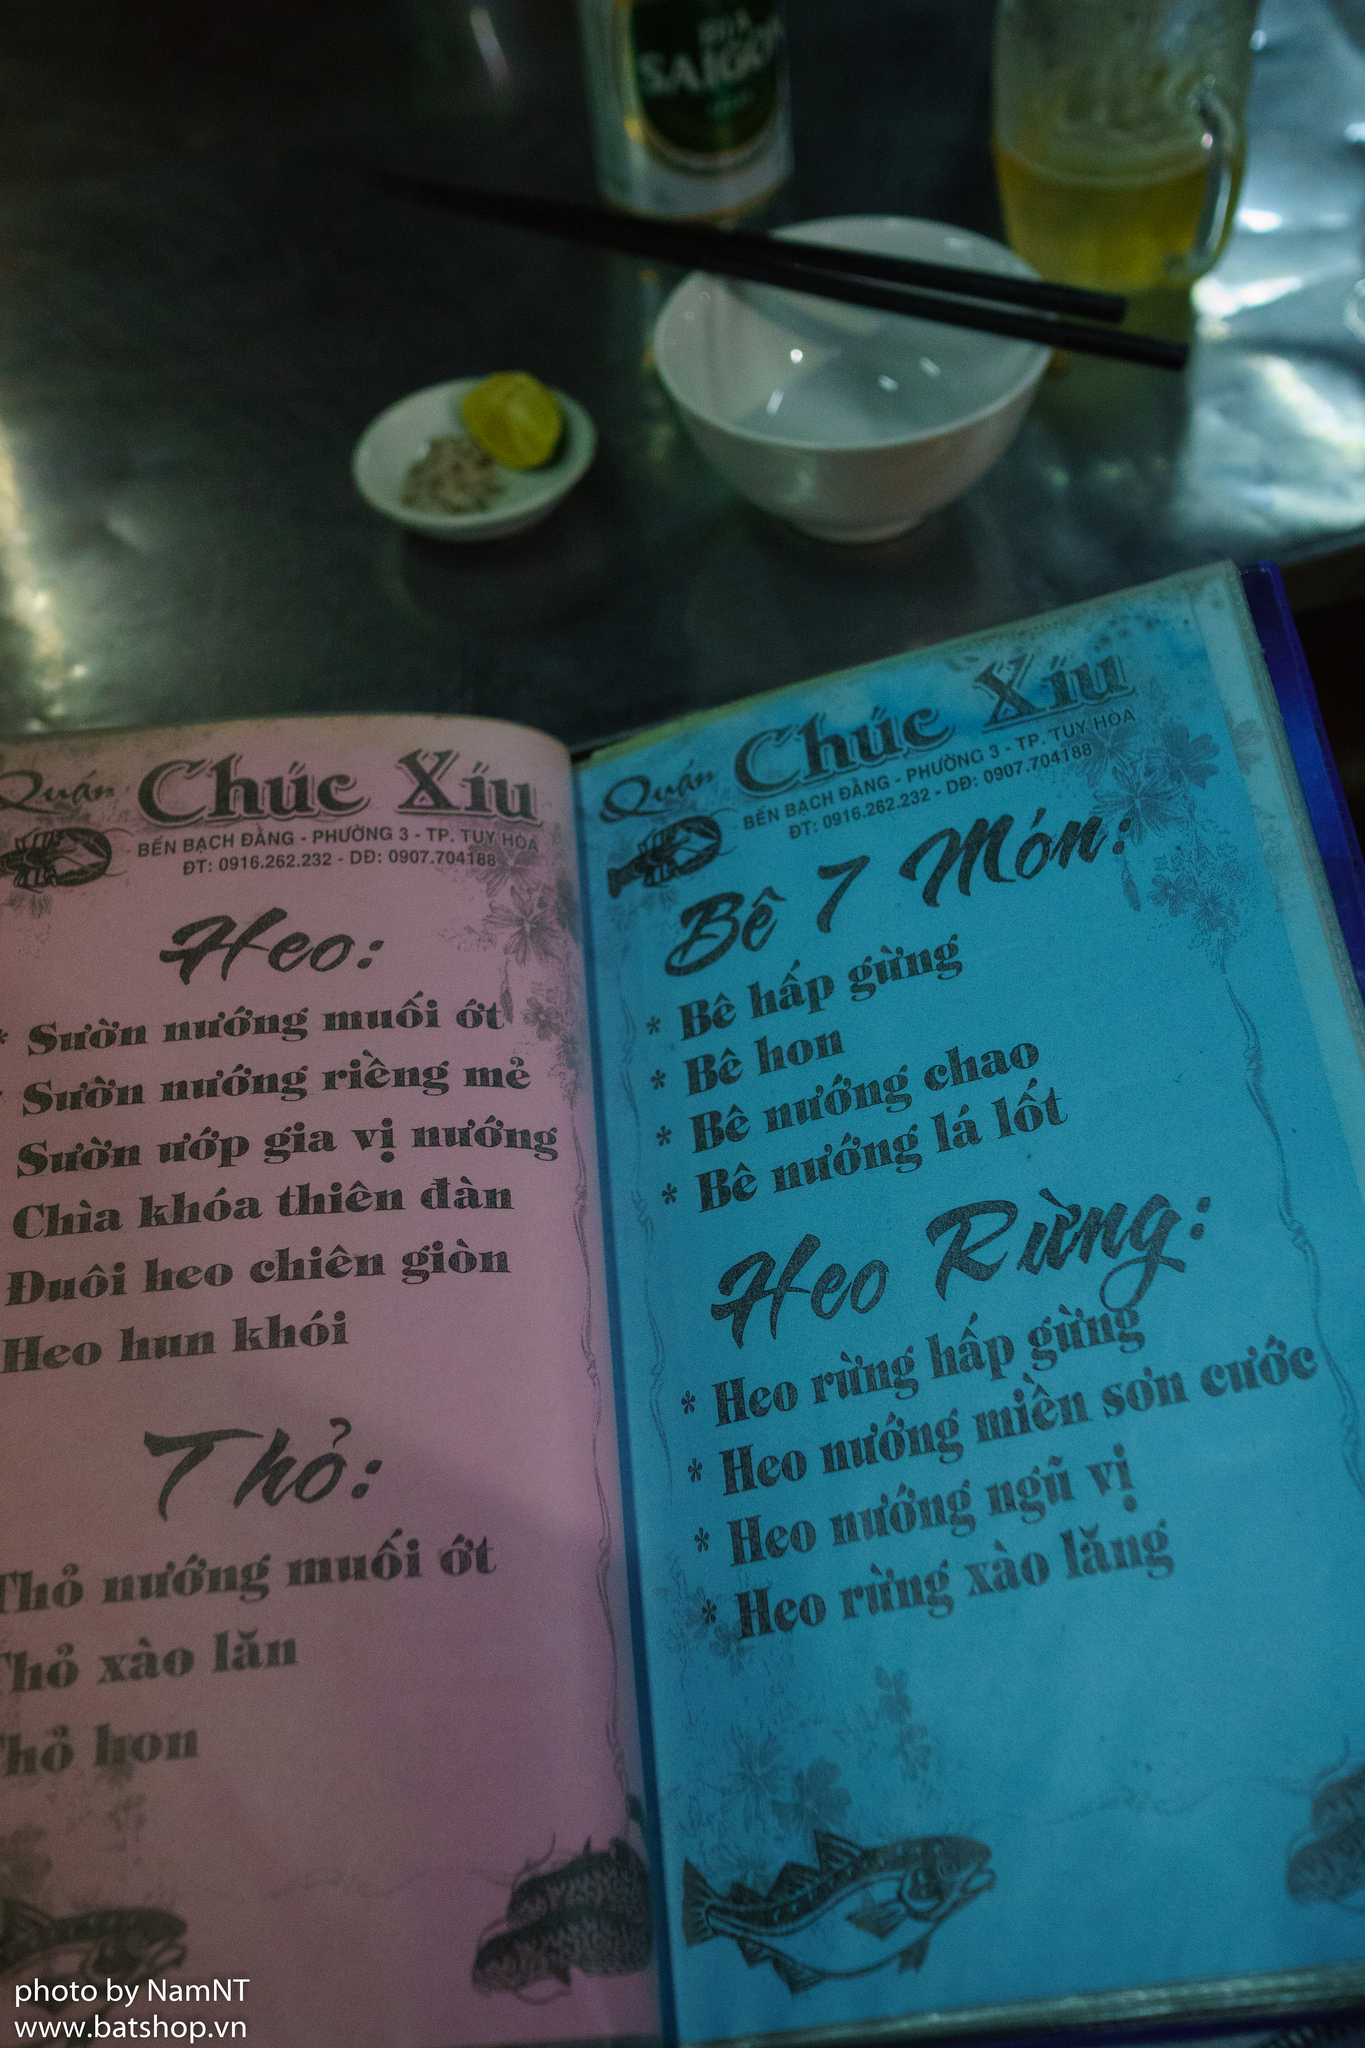 BIA
SAIGON
Quán Chúc Xíu
BẾN BẠCH ĐẰNG - PHƯỜNG 3 - TP. TUY HOA
ĐT: 0916.262.232 - DĐ: 0907.704188
Heo:
* Sườn nướng muối ớt
* Sườn nướng riềng mẻ
Sườn ướp gia vị nướng
Chìa khóa thiên đàn
Đuôi heo chiên giòn
Heo hun khói
Thỏ:
Thỏ nướng muối ớt
Thỏ xào lăn
Thỏ hon
Quán Chúc Xíu
BẾN BẠCH ĐẰNG - PHƯỜNG 3 - TP. TUY HOA
ĐT: 0916.262.232 - DĐ: 0907.704188
Bê 7 Món:
* Bê hấp gừng
* Bê hon
* Bê nướng chao
* Bê nướng lá lốt
Heo Rừng:
* Heo rừng hấp gừng
* Heo nướng miền sơn cước
* Heo nướng ngũ vị
* Heo rừng xào lăng
photo by NamNT
www.batshop.vn